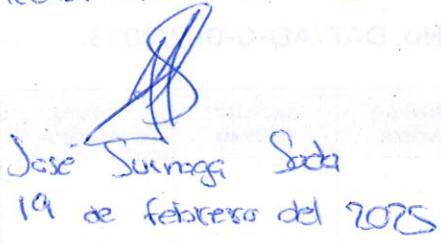 José Suinaga Soda
19 de febrero del 2025